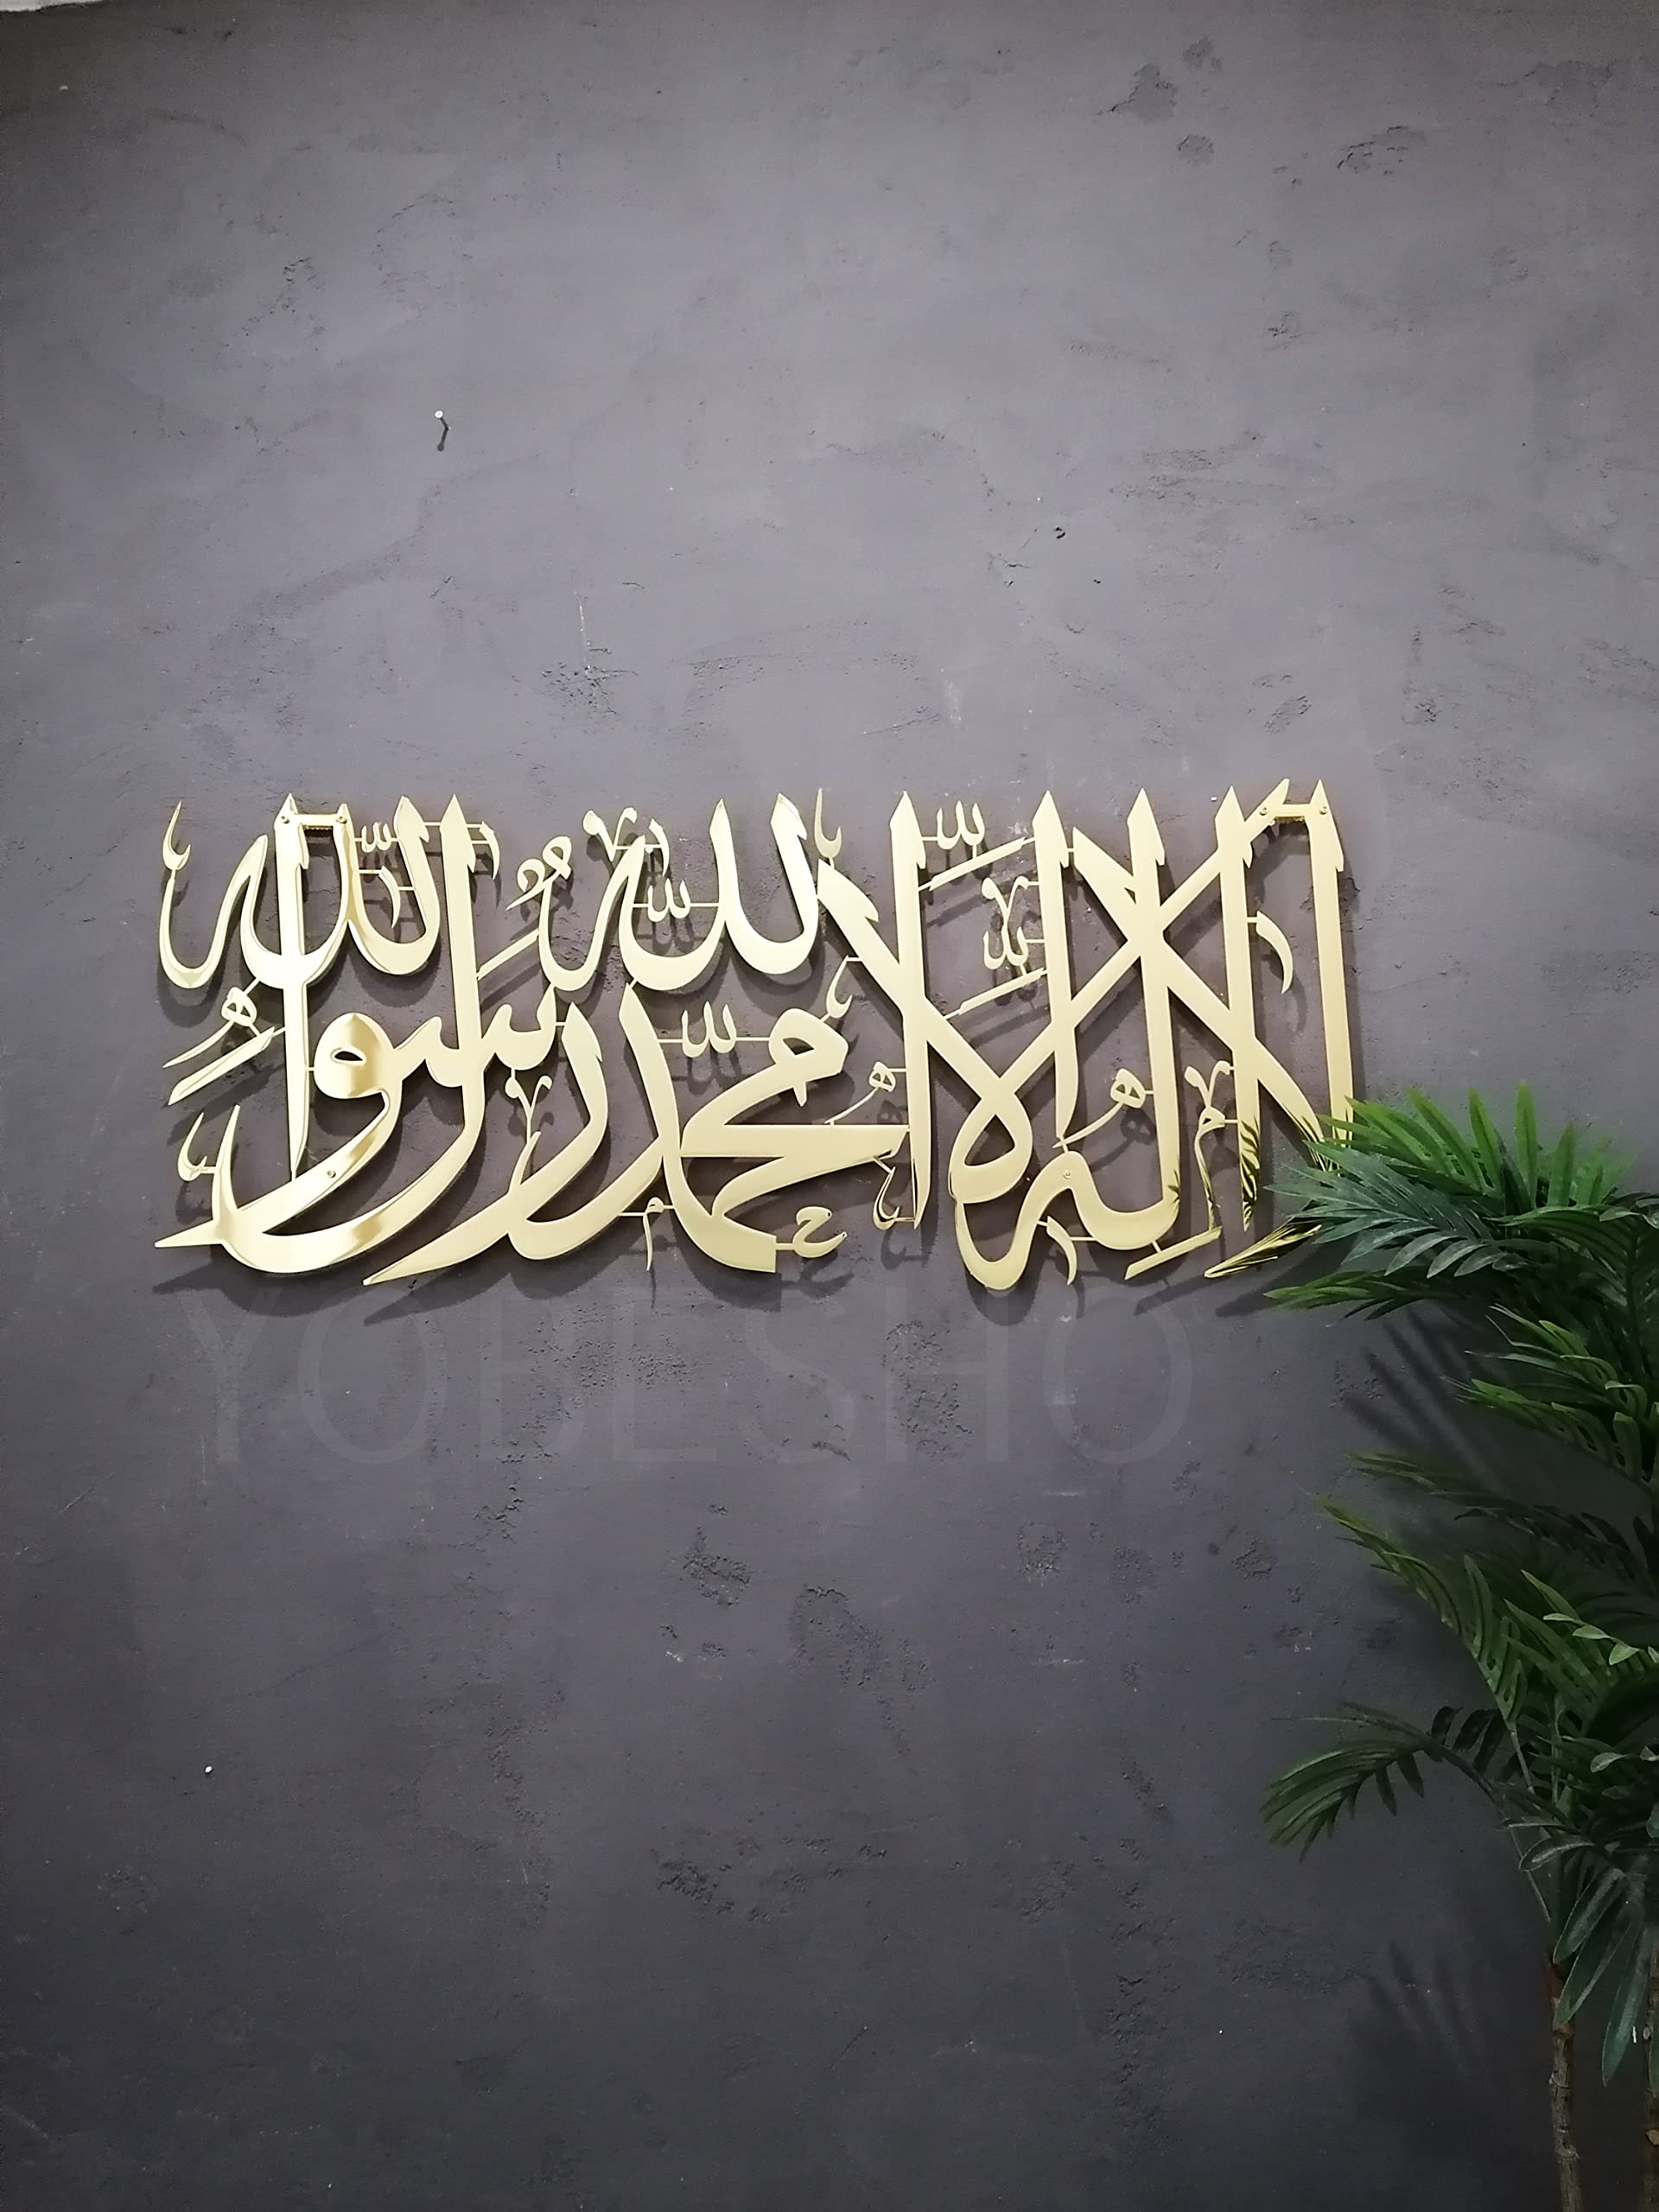 لا إله إلا الله محمد رسول الله
YOBESHO